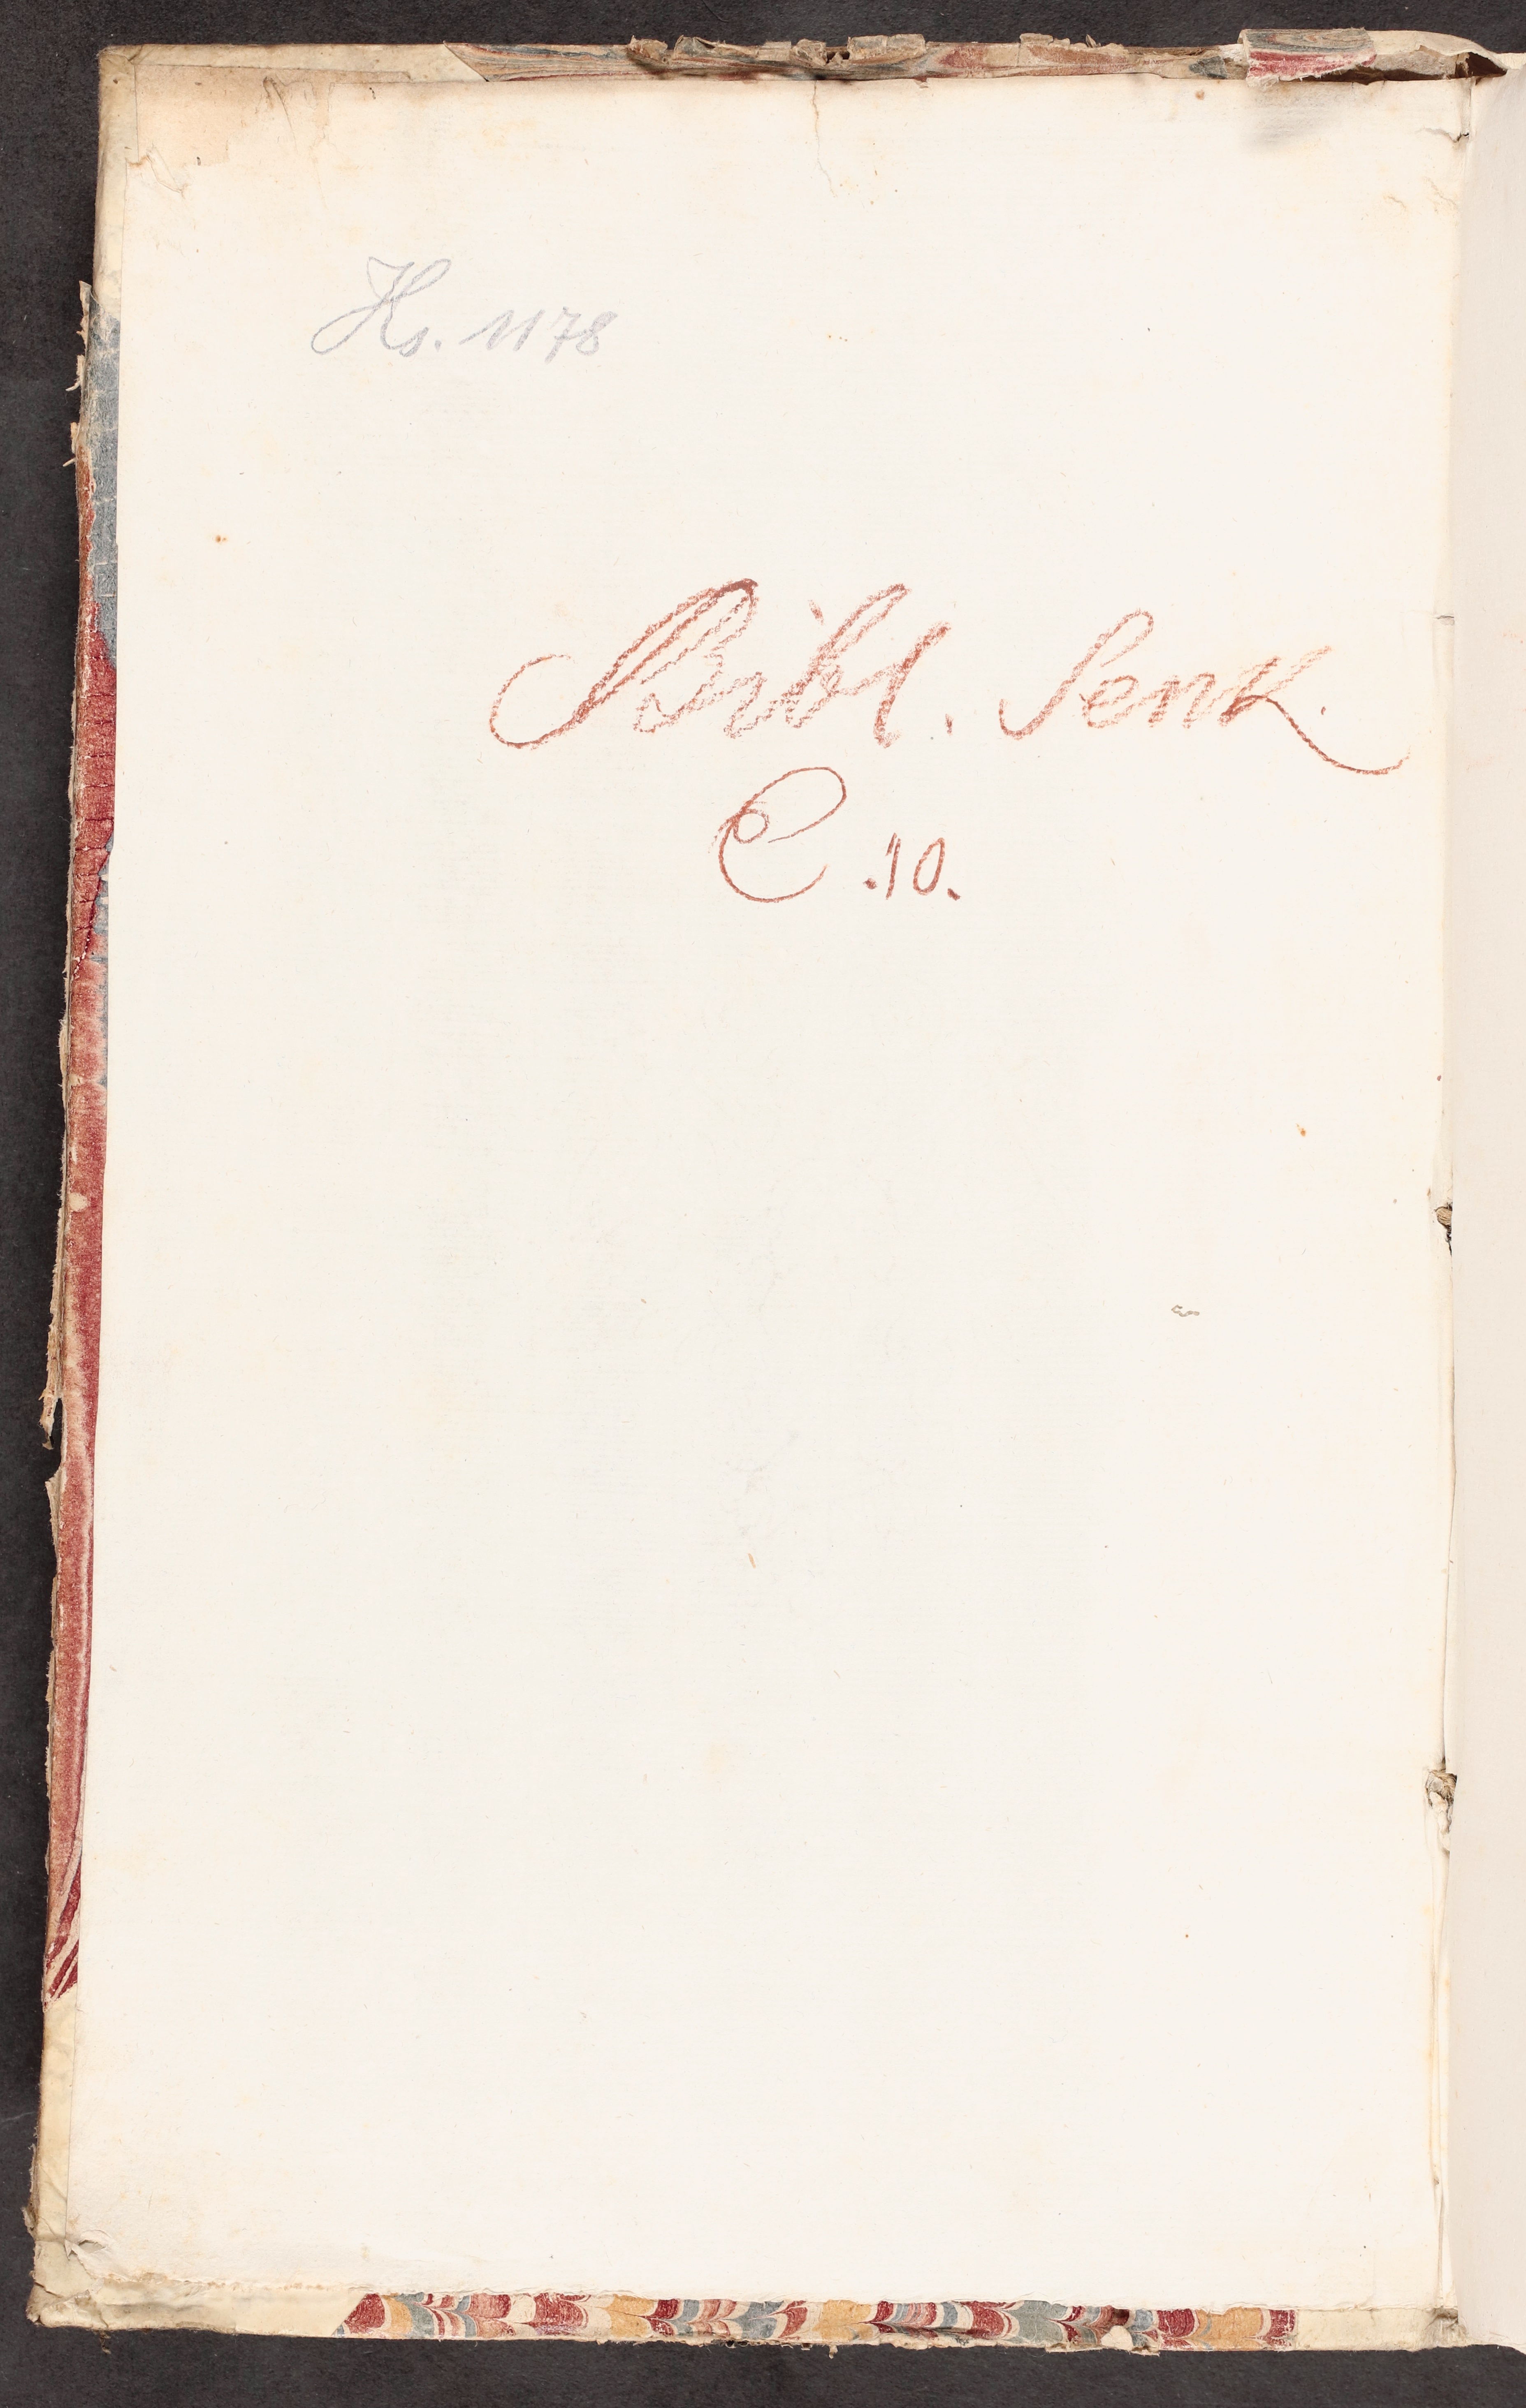 Hs. 1178
Bibl. Senk.
C. 10.